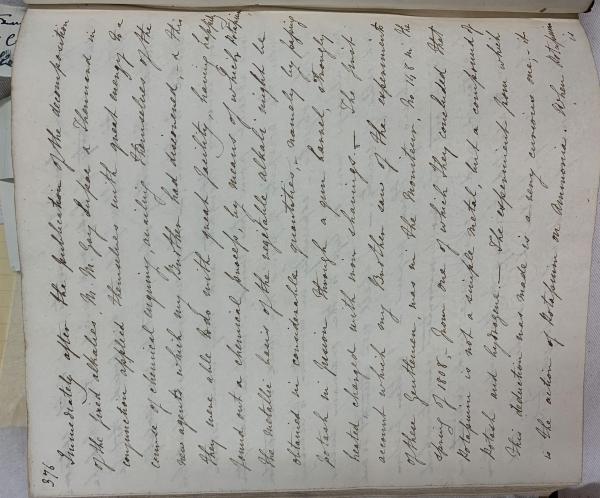 376
Immediately after the publication of the decomposition
of the fixed alkalies, M. M. Gay Lussac & Thenard in
conjunction applied themselves with great energy to a
course of chemical enquiry availing themselves of the
new agents which my Brother had discovered, & this
they were able to do with great facility, having happily
found out a chemical process, by means of which Potassium
the metallic basis of the vegetable alkali might be
obtained in considerable quantities, - namely by passing
Potash in fusion through a gun barrel, strongly
heated charged with iron shavings. - The first
account which my Brother saw of the experiments
of these Gentlemen was in the Moniteur, No 148 in the
Spring of 1808, - from one of which they concluded that
Potassium is not a simple metal, but a compound of
Potash and hydrogene. - The experiment from which
this deduction was made is a very curious one; it
is the action of Potassium on Ammonia. When Potassium
is